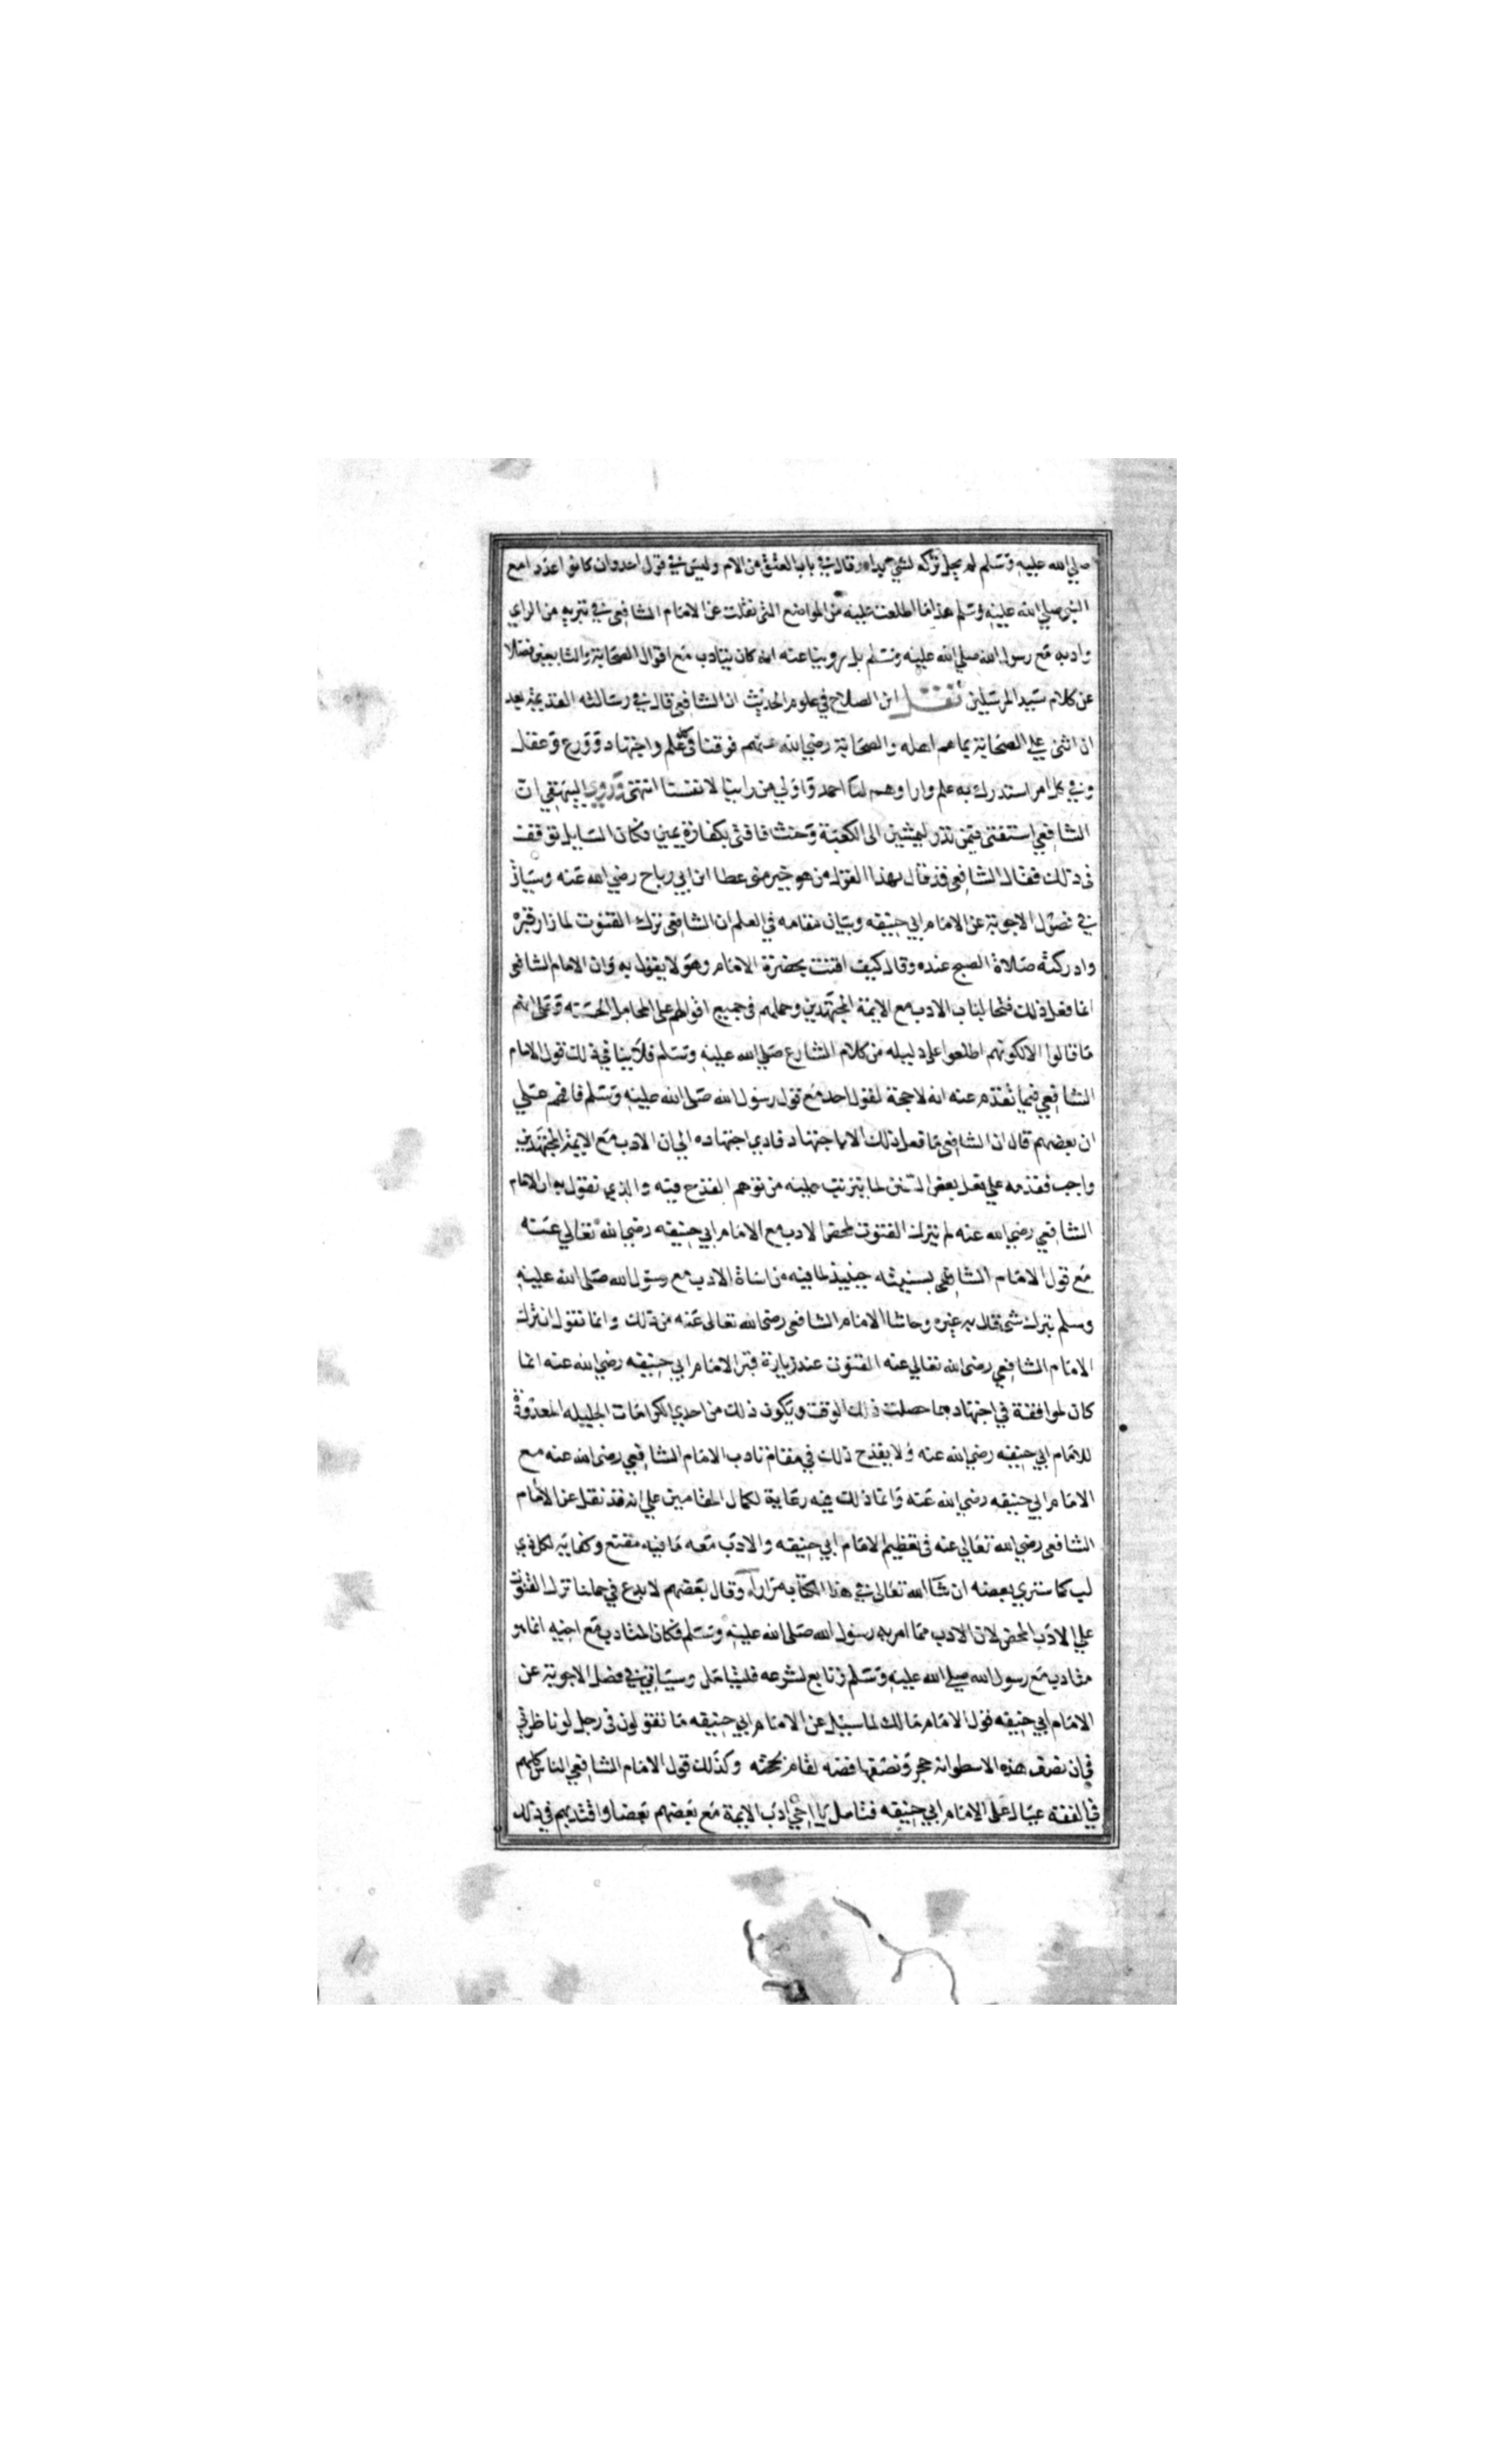 صلي الله عليه وسلم لم يحل تركه لشي ابدا وقال في باب العتق من الام وليس في قول احد وان كانوا عددا مع
النبي صلي الله عليه وسلم هذا ما اطلعت عليه من المواضع التي نقلت عن الامام الشافعي في تبريه من الراي
وادبه مع رسول الله صلي الله عليه وسلم بل روينا عنه انه كان يتادب مع اقوال الصحابة والتابعين فضلا
عن كلام سيد المرسلين نقل ابن الصلاح في علوم الحديث ان الشافعي قال في رسالته القديمة بعد
ان اثني علي الصحابة بما هم اهله والصحابة رضي الله عنهم فوقنا في كل علم واجتهاد وورع وعقل
وفي كل امر استدرك به علم واراوهم لنا احمد واولي من راينا لانفسنا انتهي وروي البيهقي ان
الشافعي استفتي فيمن نذر ليمشين الي الكعبة وحنث فافتي بكفارة يمين فكان السايل توقف
في ذلك فقال الشافعي قد قال بهذا القول من هو خير مني عطا ابن ابي رباح رضي الله عنه وسياتي
في فصول الاجوبة عن الامام ابي حنيفه وبيان مقامه في العلم ان الشافعي ترك القنوت لما زار قبره
وادركته صلاة الصبح عنده وقال كيف اقنت بحضرة الامام وهو لا يقول به وان الامام الشافعي
انما فعل ذلك فتحا لباب الادب مع الايمة المجتهدين وحملهم في جميع اقوالهم علي المحامل الحسنه وعلي انهم
ما قالوا الا لكونهم اطلعوا علي دليله من كلام الشارع صلي الله عليه وسلم فلا ينافي ذلك قول الامام
الشافعي فيما تقدم عنه انه لا حجة لقول احد مع قول رسول الله صلي الله عليه وسلم فافهم علي
ان بعضهم قال ان الشافعي ما فعل ذلك الا باجتهاد فادي اجتهاده الي ان الادب مع الايمة المجتهدين
واجب فقدمه علي فعل بعض السنن لما يترتب عليه من توهم القدح فيه والذي نقول به ان الامام
الشافعي رضي الله عنه لم يترك القنوت لمحض الادب مع الامام ابي حنيفه رضي الله تعالي عنه
مع قول الامام الشافعي بسنيته حينيذ لما فيه من اساة الادب مع رسول الله صلي الله عليه
وسلم بترك شي قال به غيره وحاشا الامام الشافعي رضي الله تعالي عنه من ذلك وانما نقول ان ترك
الامام الشافعي رضي الله تعالي عنه القنوت عند زيارة قبر الامام ابي حنيفه رضي الله عنه انما
كان لموافقة في اجتهادهما حصلت ذلك الوقت ويكون ذلك من احدي الكرامات الجليله المعدودة
للامام ابي حنيفه رضي الله عنه ولا يقدح ذلك في مقام تادب الامام الشافعي رضي الله عنه مع
الامام ابي حنيفه رضي الله عنه وانما ذلك فيه رعاية لكمال المقامين علي انه قد نقل عن الامام
الشافعي رضي الله تعالي عنه في تعظيم الامام ابي حنيفه والادب معه ما فيه مقنع وكفايه لكل ذي
لب كما ستري بعضه ان شا الله تعالي في هذا الكتاب مرارا وقال بعضهم لا بدع في حملنا ترك القنوت
علي الادب المحض لان الادب مما امر به رسول الله صلي الله عليه وسلم فكان المتادب مع اخيه انما هو
متادب مع رسول الله صلي الله عليه وسلم وتابع لشرعه فليتامل وسياتي في فصل الاجوبة عن
الامام ابي حنيفه قول الامام مالك لما سيل عن الامام ابي حنيفه ما تقولون في رجل لو ناظرني
في ان نصف هذه الاسطوانه حجر ونصفها فضه لقام بحجته وكذلك قول الامام الشافعي الناس كلهم
في الفقه عيال علي الامام ابي حنيفه فتامل يا اخي ادب الايمة مع بعضهم بعضا واقتد بهم في ذلك